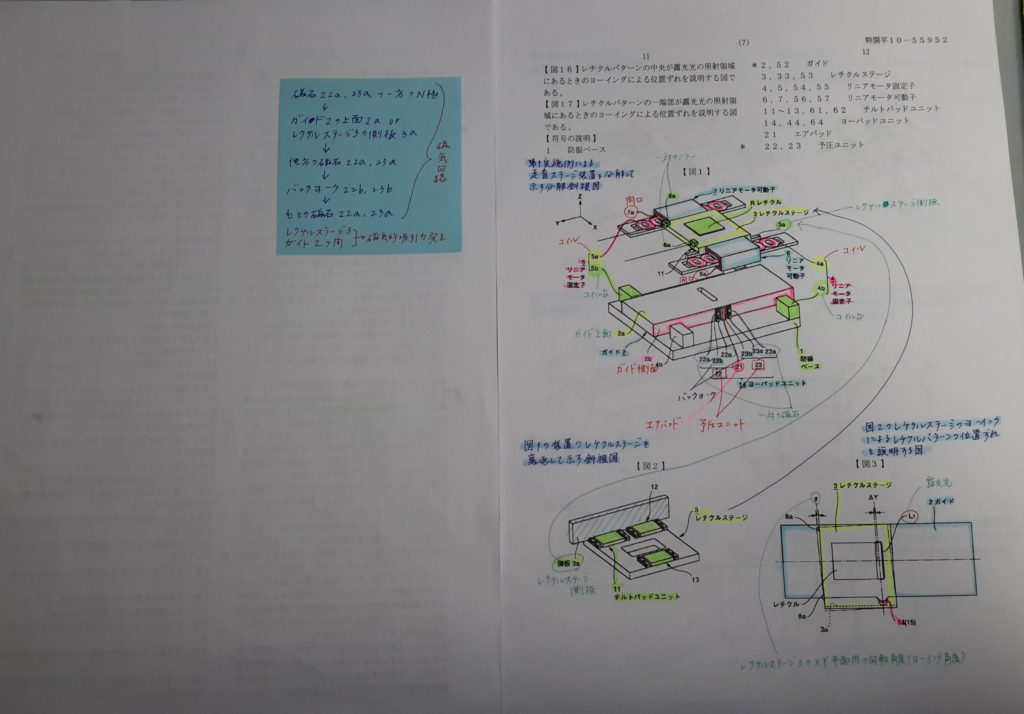 磁石22a,23aの一方のN極
↓
ガイド2の上面2a or
レクチルステージ3の側板3a
↓
他方の磁石22a,23a
↓
バックヨーク22b,23b
↓
もとの磁石22a,23a
磁気回路
レクチルステージ3
ガイド2の間
→磁気的吸引力発生
(7)
特開平10-55952
11
12
【図16】レチクルパターンの中央が露光光の照射領域
にあるときのヨーイングによる位置ずれを説明する図で
ある。
【図17】レチクルパターンの一端部が露光光の照射領
域にあるときのヨーイングによる位置ずれを説明する図
である。
【符号の説明】
1 防振ベース
＊2,52 ガイド
3,33,53 レチクルステージ
4,5,54,55 リニアモータ固定子
6,7,56,57 リニアモータ可動子
11~13,61,62 チルトパッドユニット
14,44,64 ヨーパッドユニット
21 エアパッド
＊ 22,23 予圧ユニット
第1実施例による
走査ステージ装置を分解して
示す分解斜視図
【図1】
一対のミラー
8a
7リニアモータ可動子
Rレチクル
3レチクルステージ
3a
レクチルステージ側板
開口
7a
Z
Y
X
コイル
5a
5
リニア
モータ
固定子
5b
コイル台
11
6a
開口
6
リニア
モータ
可動子
コイル
4a
4
リニア
モータ
固定子
4b
コイル台
ガイド上面
2a
ガイド2
2b
ガイド側面
4b
22a
22b
21
23b
23a
22
23
14ヨーパッドユニット
1
防振
ベース
バックヨーク
エアパッド
予圧ユニット
一対の磁石
図1の装置のレチクルステージを
裏返して示す斜視図
【図2】
12
3
レチクルステージ
側板3a
レクチルステージ
側板
11
チルトパッドユニット
13
図2のレクチルステージのヨーイング
によるレクチルパターンの位置ずれ
を説明する図
【図3】
露光光
θ
3レチクルステージ
ΔY
L1
2ガイド
8a
レチクル
8a
3a
14(15)
レクチルステージ3のXY平面内の回転角度(ヨーイング角度)